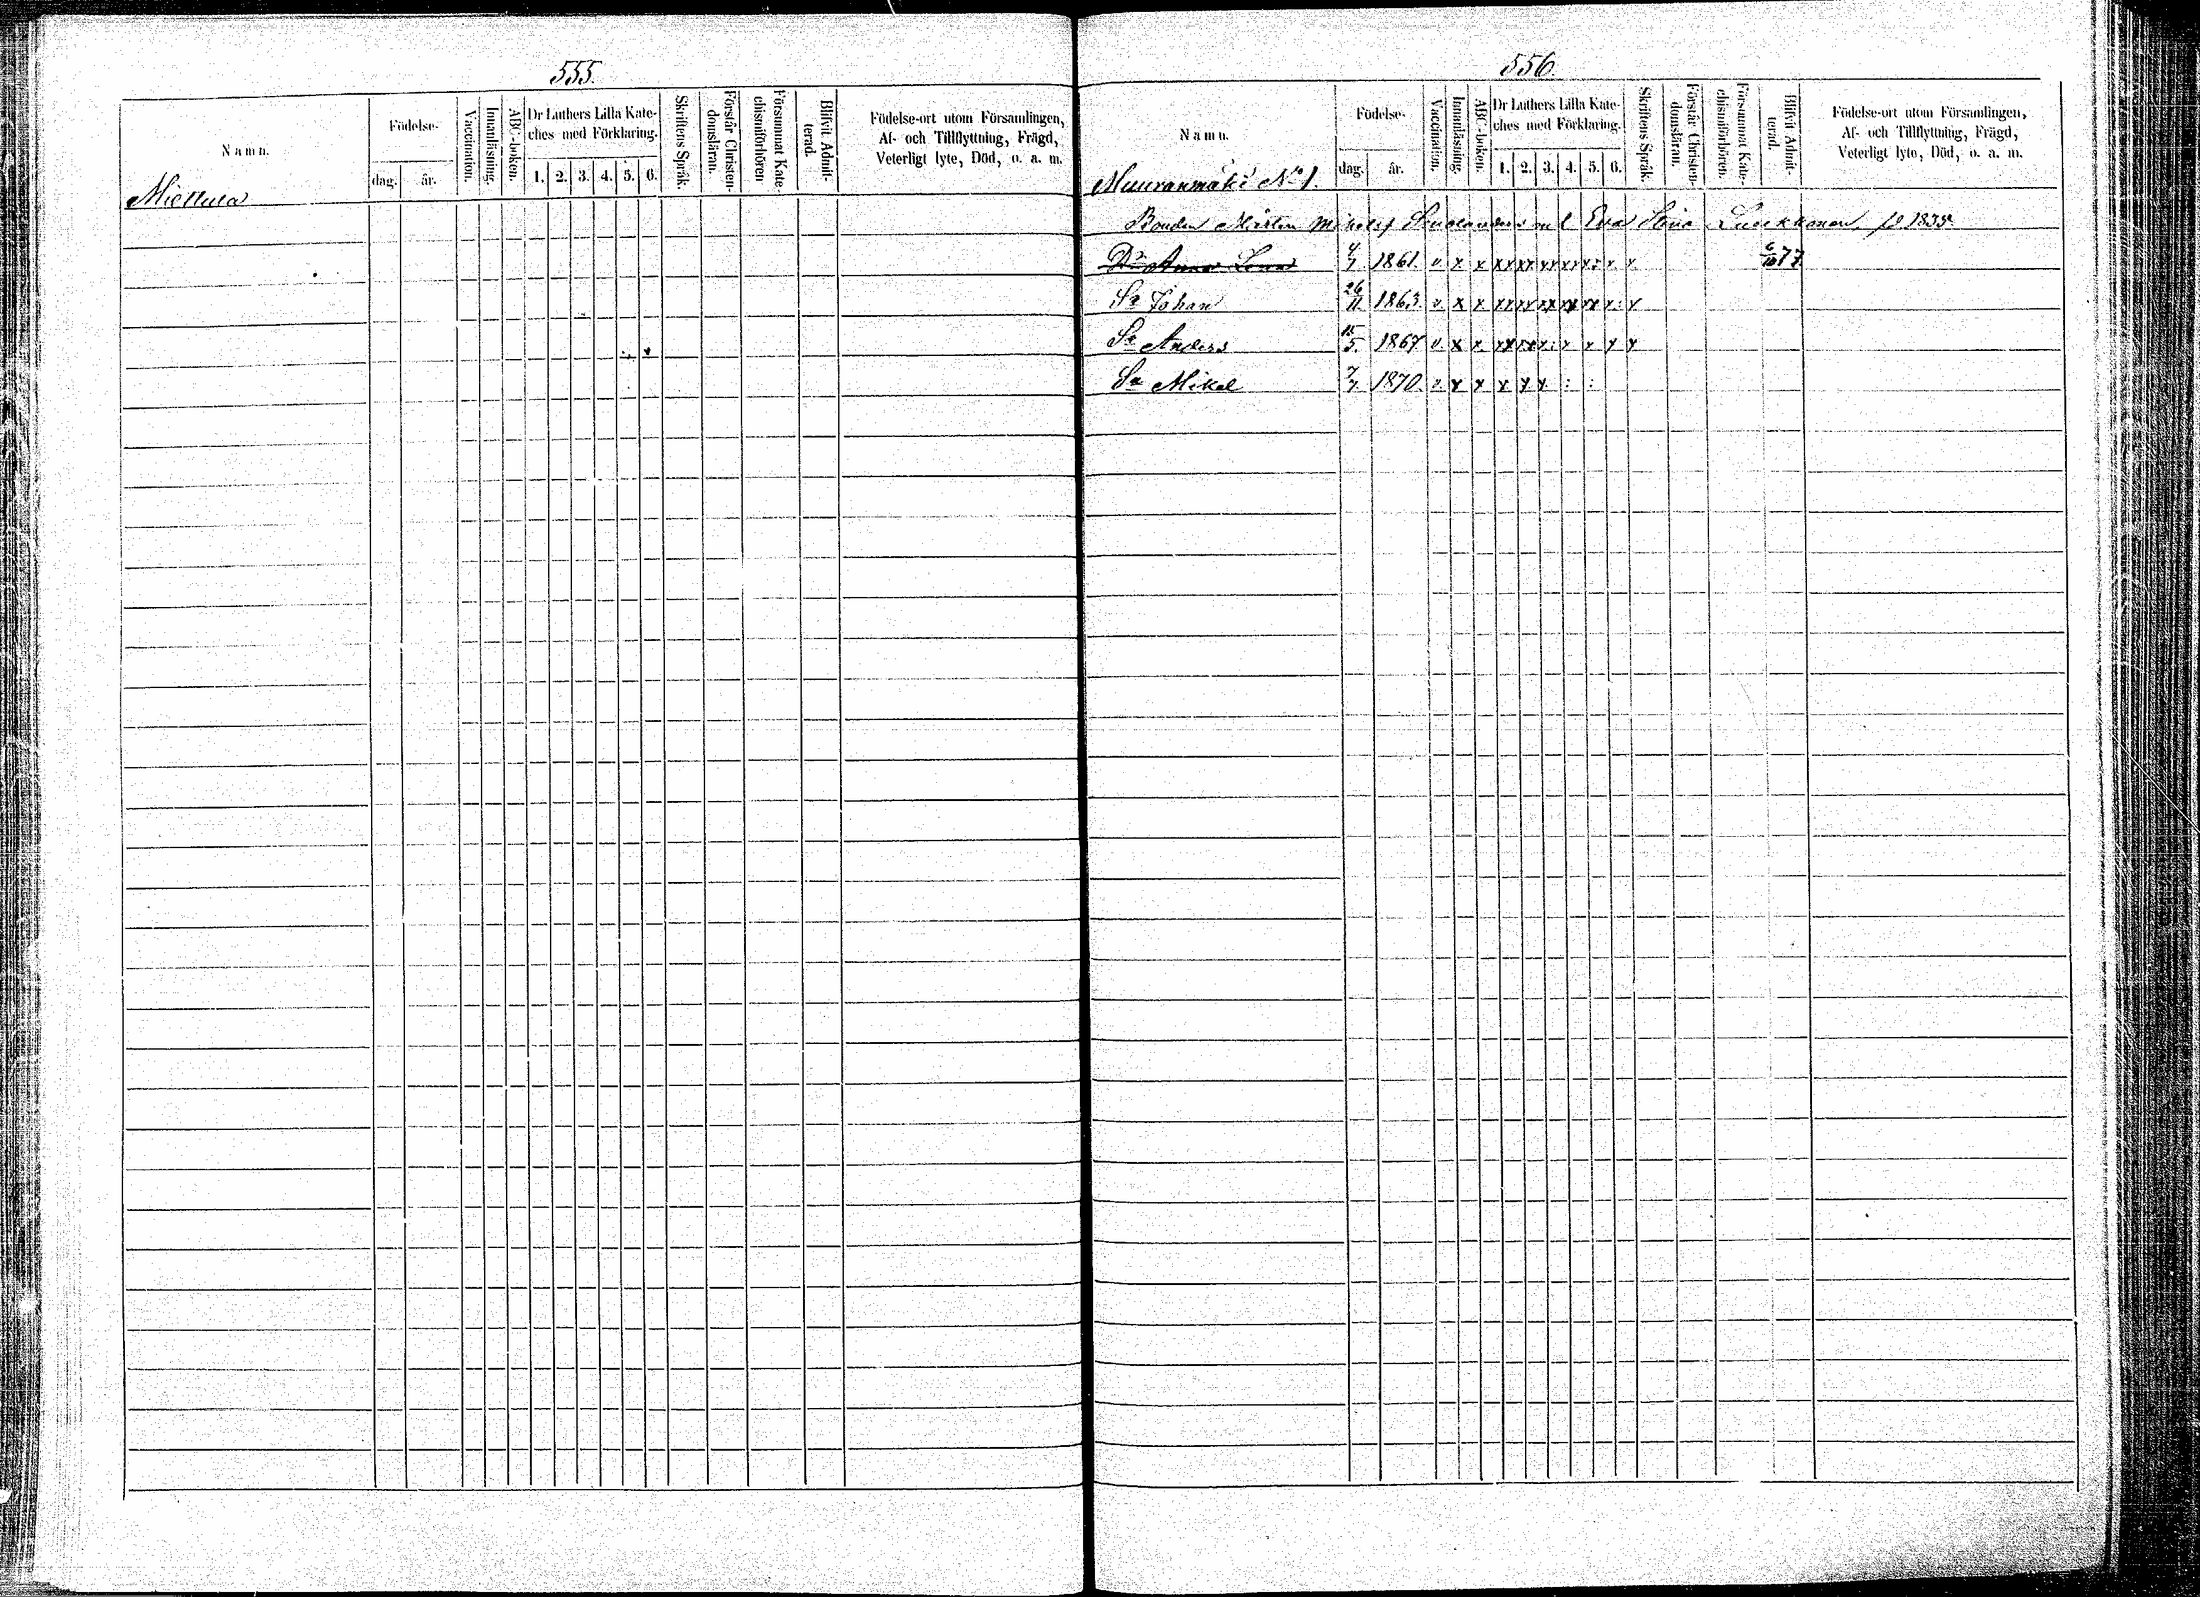 555.
Namn.
Födelse-
dag. år.
Vaccination.
Innanläsning.
ABC-boken.
Dr Luthers Lilla Kate-
ches med Förklaring.
1. 2. 3. 4. 5. 6.
Skriftens Språk.
Förstår Christen-
domsläran.
Försummat Kate-
chismiförhören
Blifvit Admit-
terad.
Födelse-ort utom Församlingen,
Af- och Tillflyttning, Frägd,
Veterligt lyte, Död, o. a. m.
Miettula
556.
Namn.
Födelse-
dag. år.
Vaccination.
Innanläsning.
ABC-boken.
Dr Luthers Lilla Kate-
ches med Förklaring.
1. 2. 3. 4. 5. 6.
Skriftens Språk.
Förstår Christen-
domsläran.
Försummat Kate-
chismiförhören.
Blifvit Admit-
terad.
Födelse-ort utom Församlingen,
Af- och Tillflyttning, Frägd,
Veterligt lyte, Död, o. a. m.
Muuranmäki No 1.
Bonden Mårten Eva Stina f. 1835
Dr Anna Lena 1861. v x x 77
Sn Johan 26/11 1863. v. x x
Sn Anders 15/5. 1867 v. x x
Sn Mikel 1870. v. x x x x x